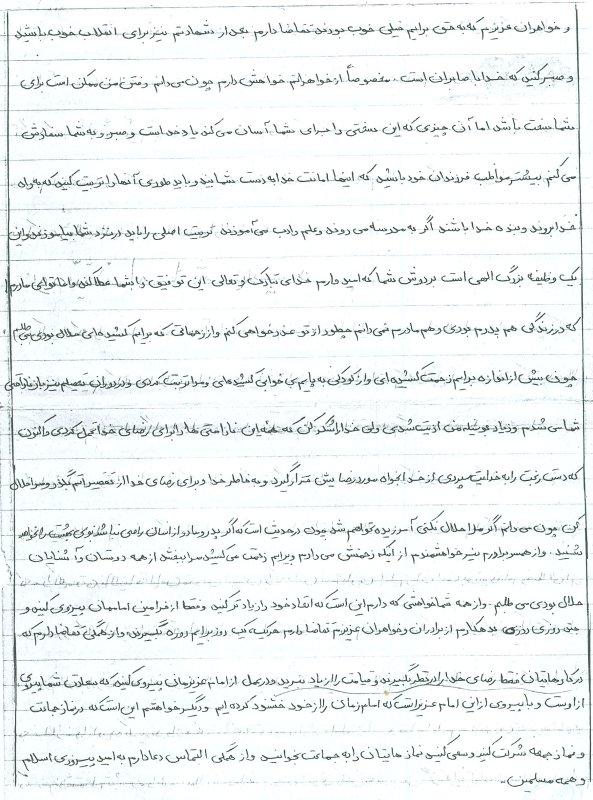 و خواهران عزیزم که به حق برایم خیلی خوب بودند تقاضا دارم بعد از شهادتم نیز برای انقلاب خوب باشید
و صبر کنید که خدا با صابران است. مخصوصاً از خواهرانم خواهش دارم چون می دانم رفتن من ممکن است برای
شما سخت باشد اما آن چیزی که این سختی را برای شما آسان می کند یاد خداست و صبر و به شما سفارش
می کنم بیشتر مواظب فرزندان خود باشید که اینها امانت خدا به دست شمایند و باید طوری آنها را تربیت کنید که به راه
خدا بروند و بنده خدا باشند اگر به مدرسه می روند و علم و ادب می آموزند تربیت اصلی را باید در نزد شما بیاموزند و این
یک وظیفه بزرگ الهی است بر دوش شما که امیدوارم خدای تبارک و تعالی این توفیق را به شما عطا کند و اما توای مادرم
که در زندگی هم پدرم بودی و هم مادرم نمی دانم چطور از تو عذرخواهی کنم و از زحماتی که برایم کشیده ای حلال بودی می طلبم
چون بیش از اندازه برایم زحمت کشیده ای و از کودکی به پایم بی خوابی کشیده ای و مرا تربیت کردی و در دوران تحصیلم نیز باز ناراحتی
شما می شدم و زیاد بوسیله من اذیت شدی ولی خدا را شکر کن که همه این ناراحتی ها را برای رضای خدا تحمل کردی و اکنون
که دسترنجت را به خدایت سپردی از خدا بخواه مورد رضایتش قرار گیرد و به خاطر خدا و برای رضای خدا از تقصیراتم بگذر و مرا حلال
کن چون می دانم اگر مرا حلال نکنی آمرزیده نخواهم شد چون در حدیث است که اگر پدر و مادر از انسان راضی نباشند بوی بهشت را نخواهد
شنید. و از همسر برادرم نیز خواهشمندم از اینکه زحمتش می دادم و برایم زحمت می کشید مرا ببخشد از همه دوستان و آشنایان
حلال بودی می طلبم. و از همه شما خواهشی که دارم این است که اتحاد خود را زیادتر کنید و فقط از فرامین اماممان پیروی کنید و
چند روزی روزه بدهکارم از برادران و خواهران عزیزم تقاضا دارم هر یک یک روز برایم روزه بگیرند و از همگی تقاضا دارم که
در کارهایتان فقط رضای خدا را در نظر بگیرید و قیامت را از یاد نبرید و در عمل از امام عزیزمان پیروی کنید که سعادت شما پیروی
از اوست و با پیروی از این امام عزیز است که امام زمان را از خود خشنود کرده ایم و دیگر خواهشم این است که در نماز جماعت
و نماز جمعه شرکت کنید و سعی کنید نمازهایتان را به جماعت بخوانید و از همگی التماس دعا دارم به امید پیروزی اسلام
و همه مسلمین.